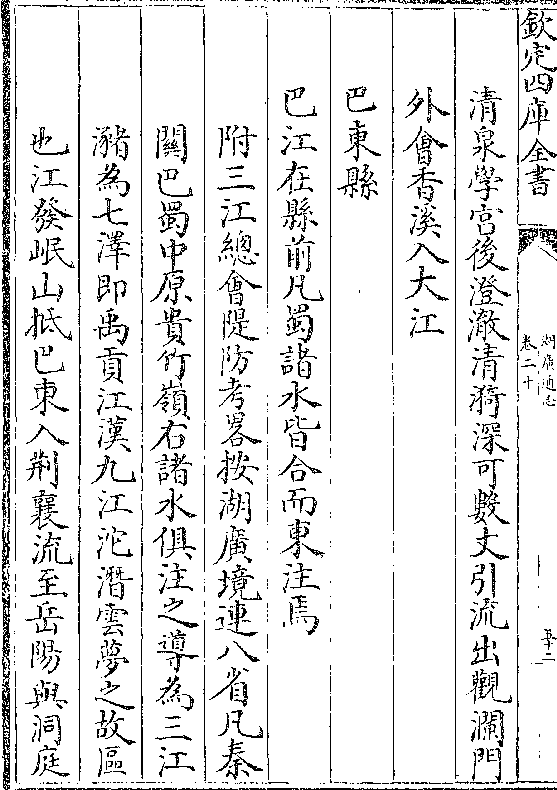 欽定四庫全書
湖廣通志
卷二十
五十二
清泉學宮後澄澈清漪深可數丈引流出觀瀾門
外會香溪入大江
巴東縣
巴江在縣前凡蜀諸水皆合而東注焉
附三江總會隄防考畧按湖廣境連八省凡秦
關巴蜀中原貴竹嶺右諸水俱注之導為三江
瀦為七澤即禹貢江漢九江沱潛雲夢之故區
也江發岷山抵巴東入荆襄流至岳陽與洞庭